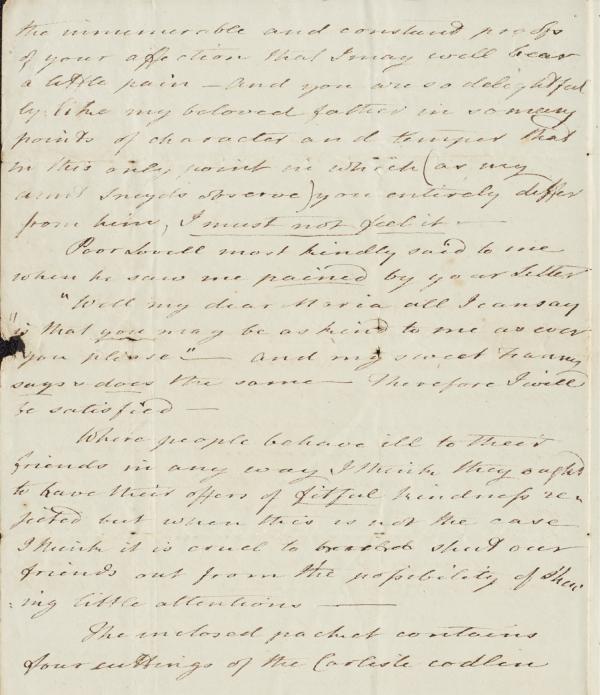 the innumerable and constant proofs
of your affection that I may well bear
a little pain — and you are so delightful
ly like my beloved father in so many
points of character and temper that
in this only point in which (as my
aunt Sneyds observe) you entirely differ
from him, I must not feel it —
Poor Lovell most kindly said to me
when he saw me pained by your Letter
"Well my dear Maria all I can say
"is that you may be as kind to me as ever
"you please" — and my sweet Fanny
says & does the same — therefore I will
be satisfied —
Where people behave ill to their
friends in any way I think they ought
to have their offers of fitful kindness re-
jected but when this is not the case
I think it is cruel to shut our
friends out from the possibility of shew
:ing little attentions —
The inclosed packet contains
four cuttings of the Carlisle codlin